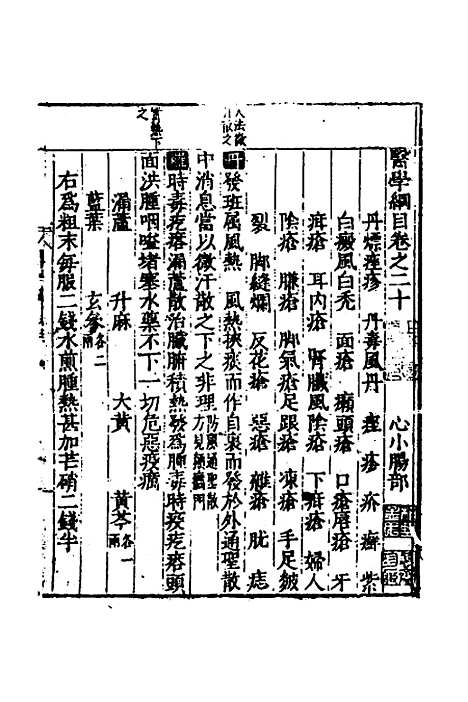 醫學綱目卷之二十　心小腸部
丹熛痤疹　丹毒風丹　痤　疹　疥　癬　紫
白癜風白禿　面瘡　癩頭瘡　口瘡唇瘡　牙
疳瘡　耳內瘡　腎臟風陰瘡　下疳瘡　婦人
陰瘡　臁瘡　脚氣瘡足跟瘡　凍瘡　手足皴
裂　脚縫爛　反花瘡　惡瘡　雜瘡　肬　痣
丹 發斑属風熱　風熱挾痰而作自裏而發於外通聖散
中消息當以微汗散之下之非理 防風通聖散方見癘風門
時毒疙瘩漏蘆散治臟腑積熱發爲腫毒時疫疙瘩頭
面洪腫咽嗌堵塞水藥不下一切危惡疫癘
漏蘆　升麻　大黃　黃芩各一兩
藍葉　玄參各二兩
右爲粗末每服二錢水煎腫熱甚加芒硝二錢半